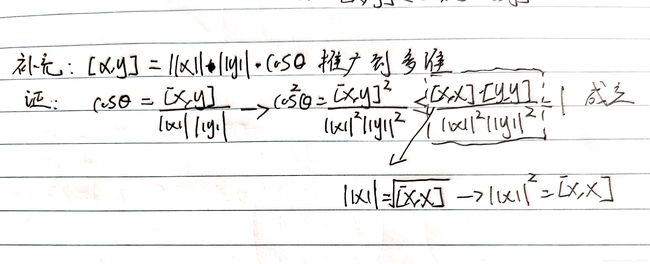 补充: [x,y] = ||x||•||y||•cosθ 推广到多维
证: cosθ = [x,y] / ||x|| ||y|| → cos²θ = [x,y]² / ||x||²||y||² ≤ [x,x]·[y,y] / ||x||²||y||² = 1 成立
||x|| = √[x,x] → ||x||² = [x,x]